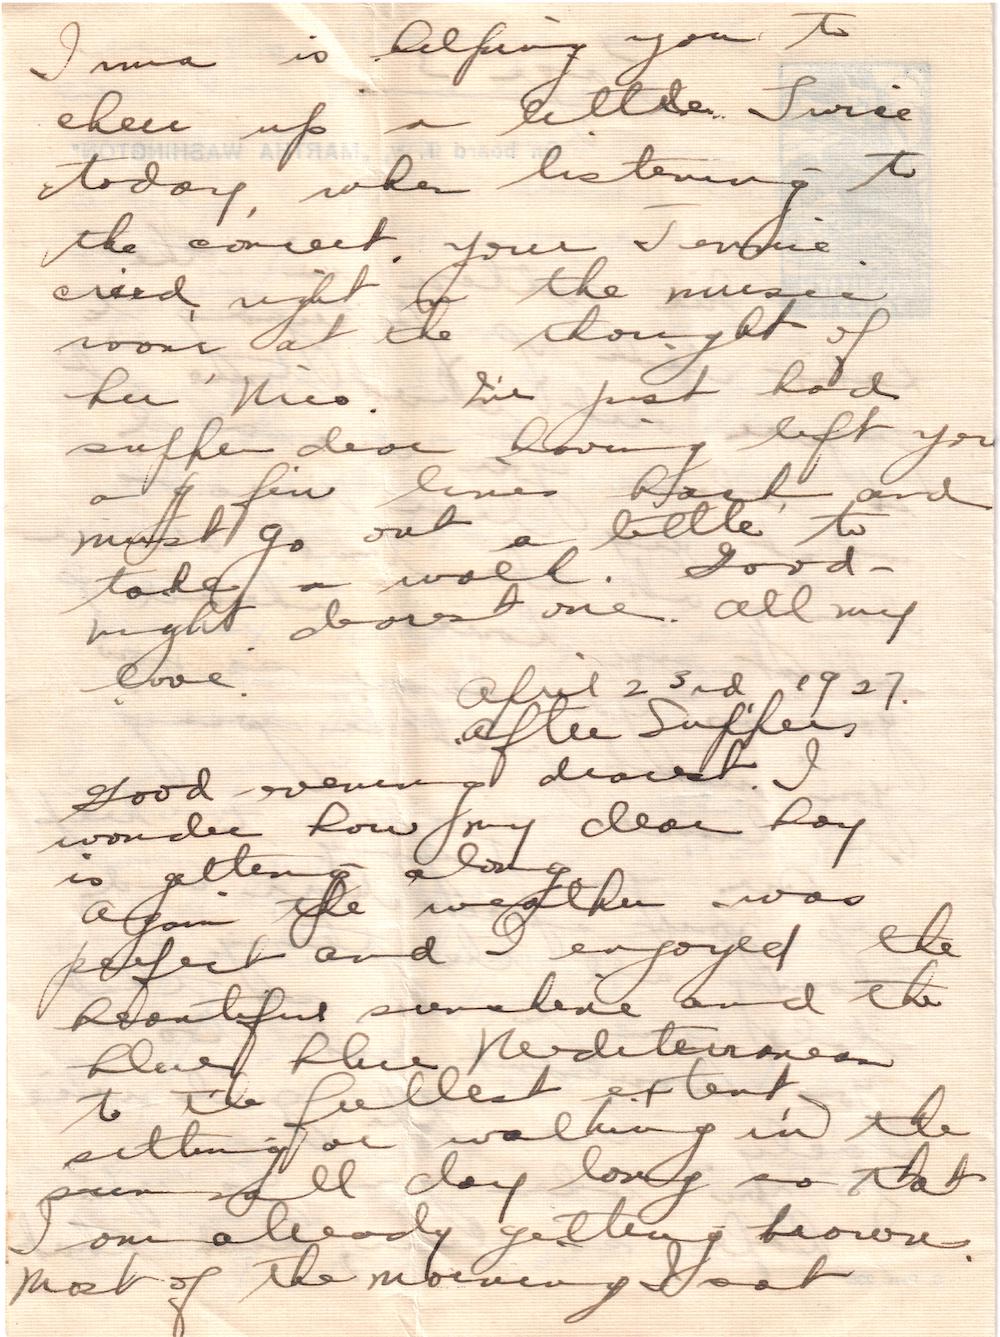 Irma is helping you to
cheer up a little. Twice
today, when listening to
the concert, your Jennie
cried right in the music
room at the thought of
her Nico. I've just had
supper dear having left you
a few lines back and
must go out a little to
take a walk. Good-
night dearest one. All my
love.
April 23rd, 1927.
After Supper,
Good evening dearest. I
wonder how my dear boy
is getting along.
Again the weather was
perfect and I enjoyed the
beautiful sunshine and the
blue, blue Mediterranean
to the fullest extent
sitting or walking in the
sun all day long so that
I am already getting brown.
Most of the morning I sat